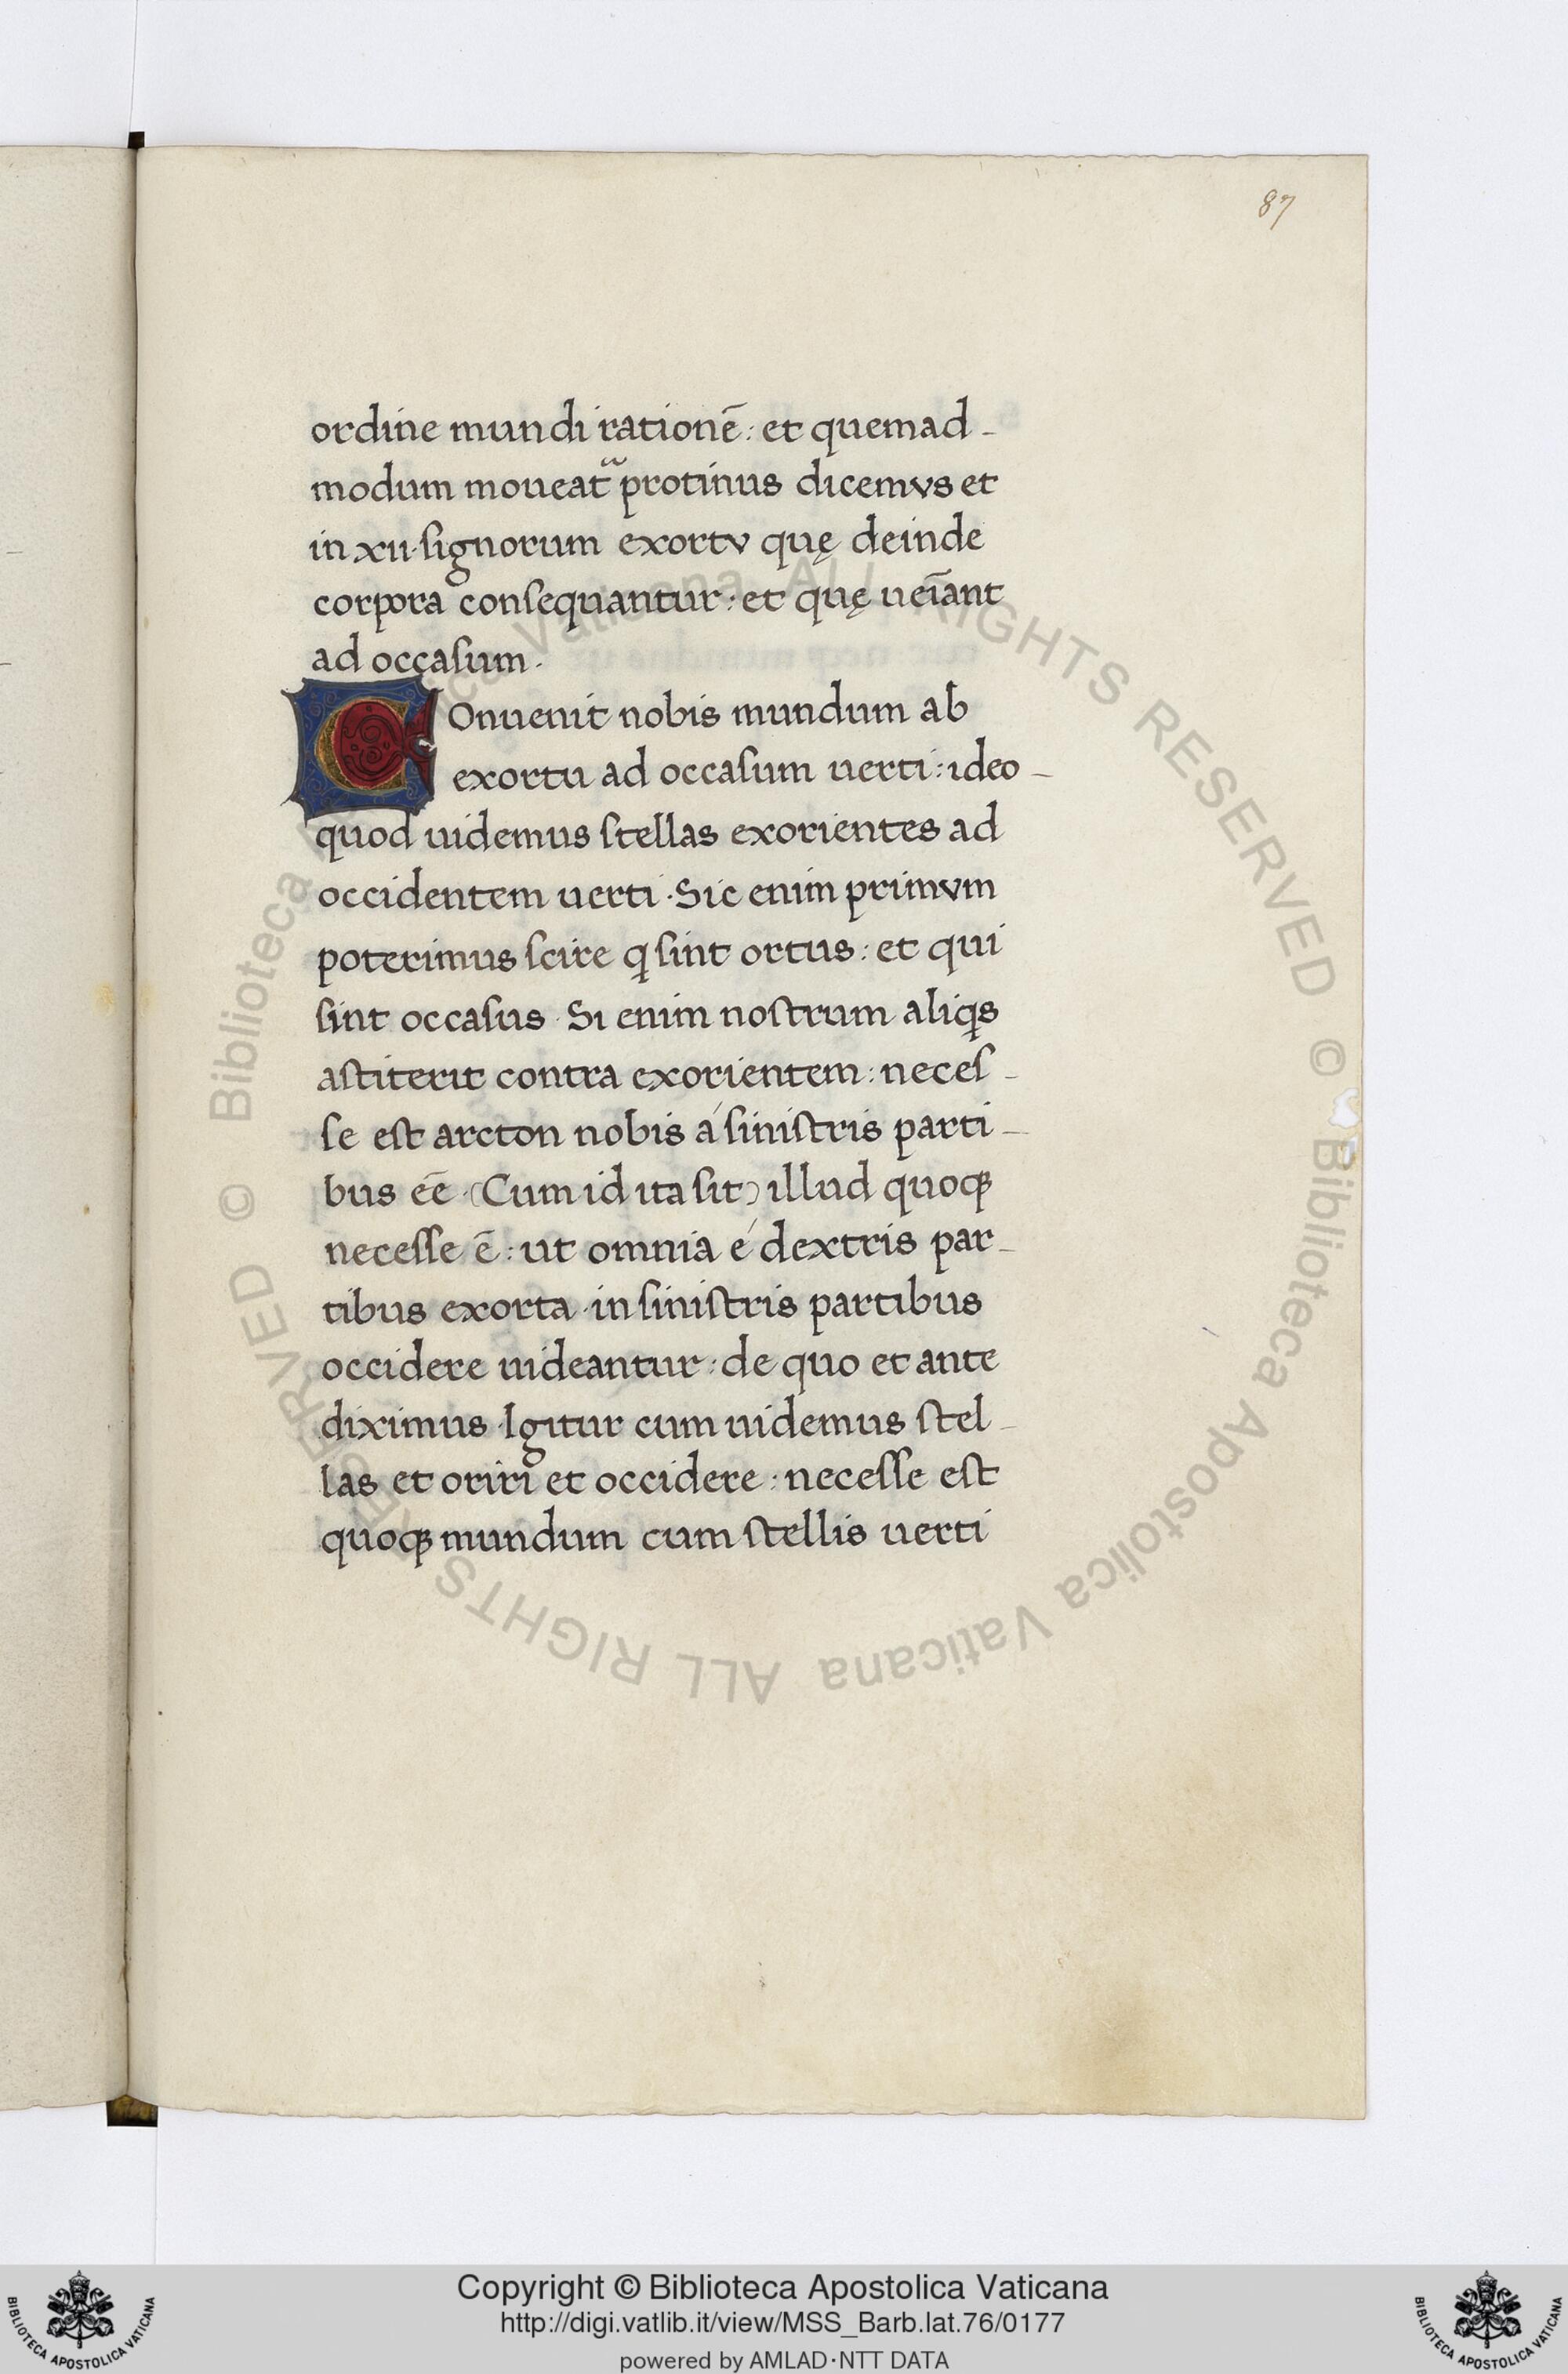 87
ordine mundi rationē: et quemad-
modum moueat᷑ protinus dicemvs et
in xıı·signorum exortv quę deinde
corpora consequantur: et quę ueīant
ad occasum·
COnuenit nobis mundum ab
exortu ad occasum uerti: ideo-
quod uidemus stellas exorientes ad
occidentem uerti·Sic enim primvm
poterimus scire q sint ortus: et qui
sint occasus·Si enim nostrum aliqs
astiterit contra exorientem: neces-
se est arcton nobis á sinistris parti-
bus eē·(Cum id ita sit) illud quoqꝫ
necesse ē: ut omnia é dextris par-
tibus exorta·in sinistris partibus
occidere uideantur: de quo et ante
diximus·Igitur cum uidemus stel-
las et oriri et occidere: necesse est
quoqꝫ mundum cum stellis uerti
© Biblioteca Apostolica Vaticana ALL RIGHTS RESERVED © Biblioteca Apostolica Vaticana ALL RIGHTS RESERVED
Copyright © Biblioteca Apostolica Vaticana
http://digi.vatlib.it/view/MSS_Barb.lat.76/0177
powered by AMLAD·NTT DATA
BIBLIOTECA APOSTOLICA VATICANA
BIBLIOTECA APOSTOLICA VATICANA